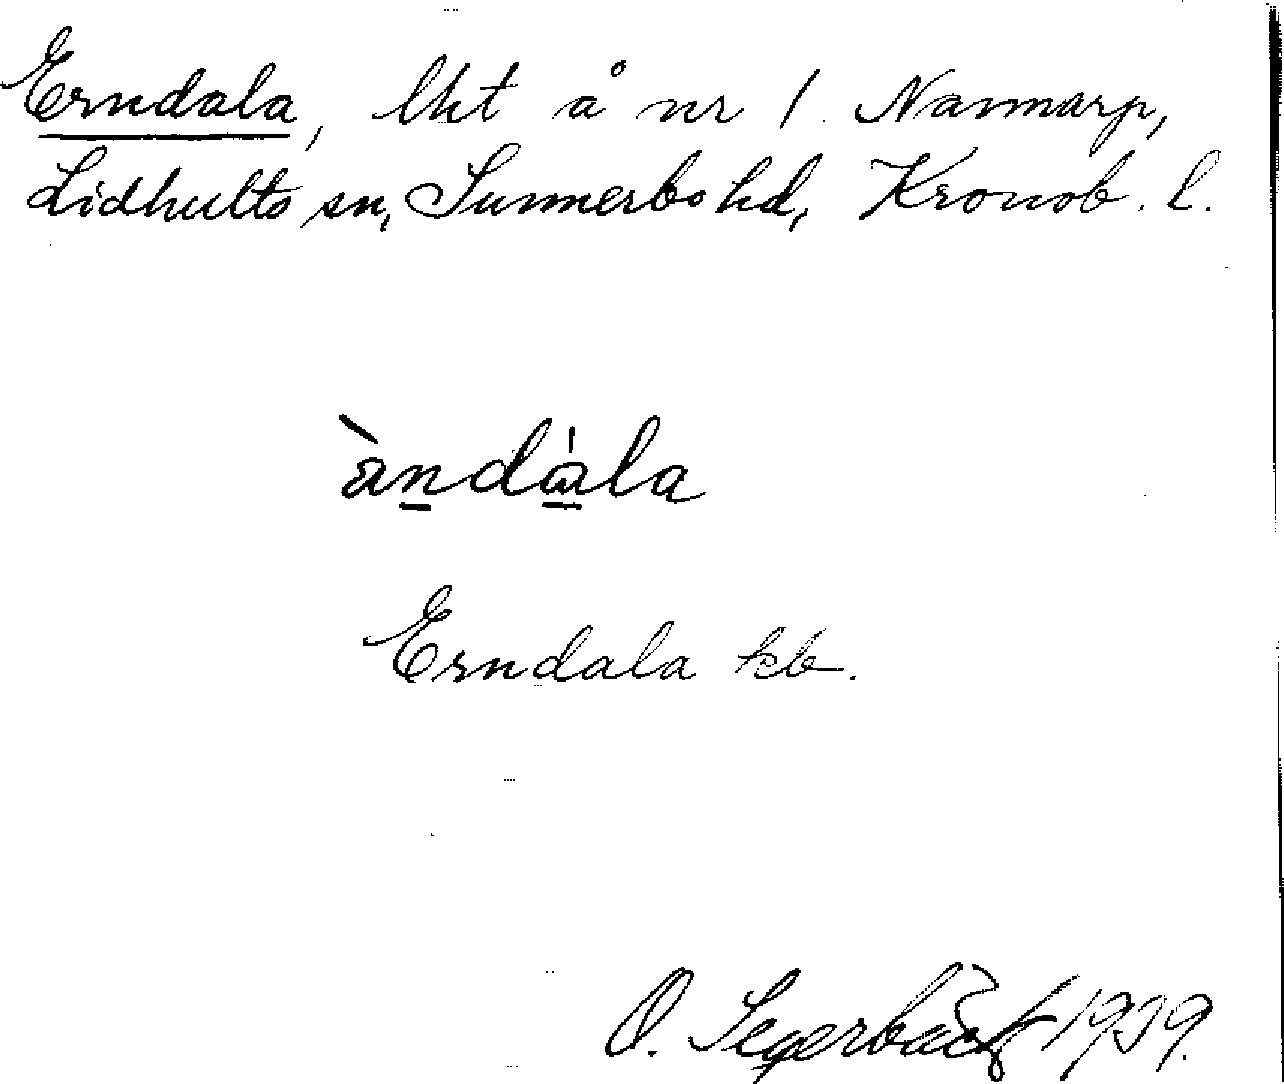 Erndala, lht å nr 1 Navmarp,
Lidhults sn, Sunnerbo hd, Kronob. l.
àndàla
Erndala kb.
O. Segerbäck 1939.